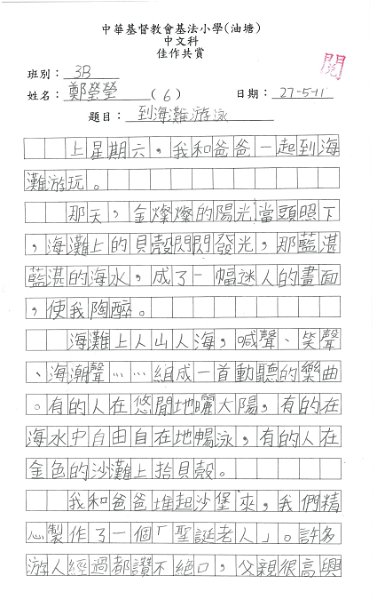 中華基督教會基法小學(油塘)
中文科
佳作共賞
閱
班別：3B
姓名：鄭瑩瑩(6) 日期：27-5-11
題目：到海灘游泳
上星期六，我和爸爸一起到海
灘游玩。
那天，金燦燦的陽光當頭照下
，海灘上的貝殼閃閃發光，那藍湛
藍湛的海水，成了一幅迷人的畫面
，使我陶醉。
海灘上人山人海，喊聲、笑聲
、海潮聲……組成一首動聽的樂曲
。有的人在悠閒地曬太陽，有的在
海水中自由自在地暢泳，有的人在
金色的沙灘上拾貝殼。
我和爸爸堆起沙堡來，我們精
心製作了一個「聖誕老人」。許多
游人經過都讚不絕口，父親很高興